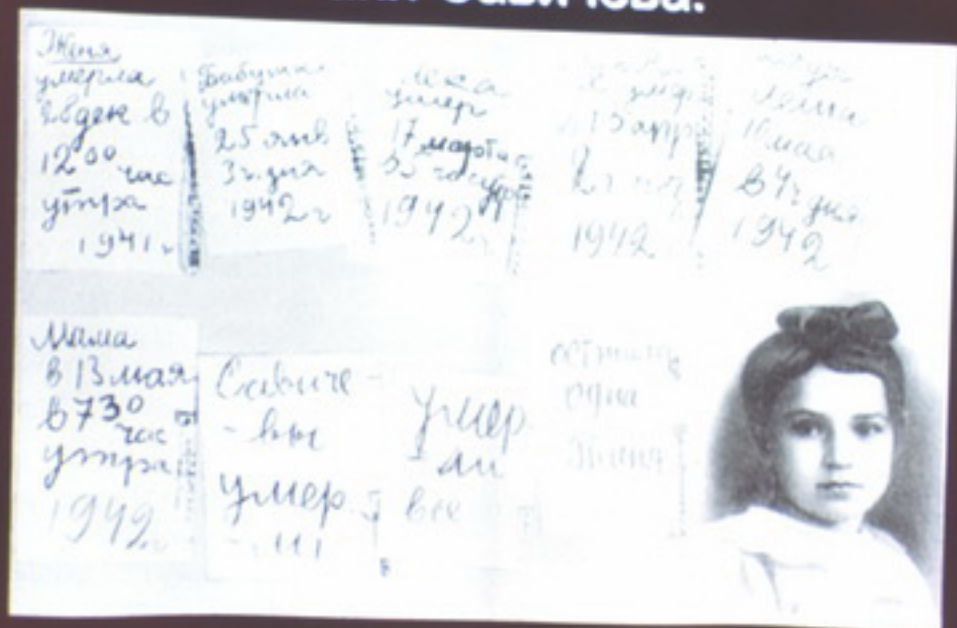 Савичева.
Женя
умерла
28 дек в
12 00 час
утра
1941 г
Бабушка
умерла
25 янв
3 ч. дня
1942 г
Лека
умер
17 марта
в 5 час утр
1942 г
15 апр
2 ч
1942
Леша
10 мая
в 4 ч дня
1942
Мама
в 13 мая
в 7 30
час
утра
1942 г
Савиче-
-вы
умер
-ли
умер
-ли
все
осталась
одна
Таня